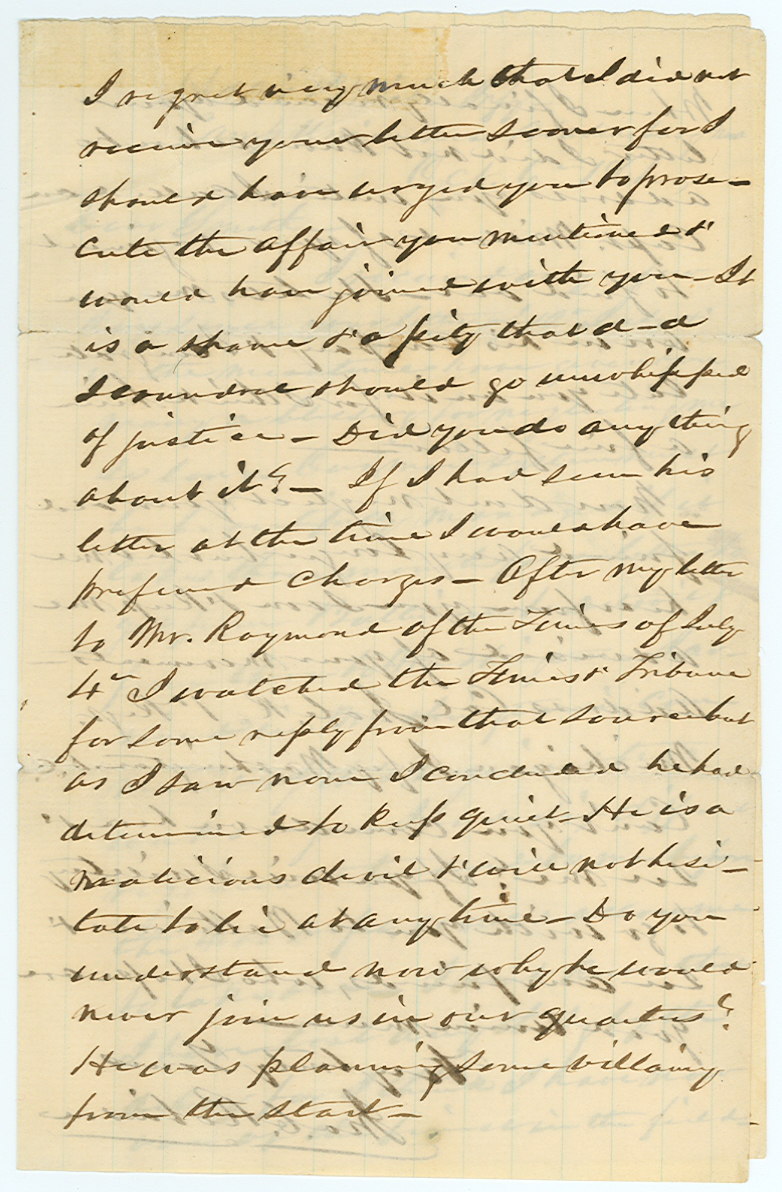 I regret very much that I did not
receive your letter sooner for I
should have urged you to prose-
cute the affair you mentioned &
would have joined with you – It
is a shame & a pity that d–d
scoundrel should go unwhipped
of justice – Did you do anything
about it? – If I had seen his
letter at the time I would have
prefered charges – After my letter
to Mr. Raymond of the Times of July
4th I watched the Times & Tribune
for some reply from that source but
as I saw none I concluded he had
determined to keep quiet – He is a
malicious devil & will not hesi-
tate to lie at any time – Do you
understand now why he would
never join us in our quarters?
He was planning some villainy
from the start –